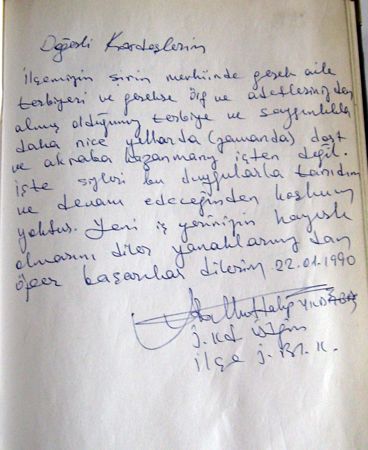 Değerli Kardeşlerim
İlçemizin şirin mevkiinde gerek aile
terbiyesi ve gerekse örf ve adetlerinizden
almış olduğunuz terbiye ve saygınlıkla
daha nice yıllarda (zamanda) dost
ve akraba kazanmanız işten değil.
işte sizleri bu duygularla tanıdım
ve devam edeceğinden kuşkum
yoktur. Yeni iş yerinizin hayırlı
olmasını diler yanaklarınızdan
öper başarılar dilerim 22.01.1990
J. Kd.
İlçe J. Bl. K.